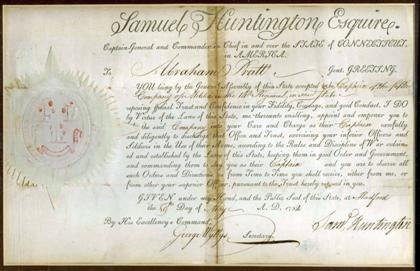 Samuel Huntington Esquire.
Captain-General and Commander in Chief in and over the STATE of CONNECTICUT,
in AMERICA.
To Abraham Pratt Gent. GREETING.
YOU being by the General Assembly of this State accepted to be Captain of the fifth
Company
reposing special Trust and Confidence in your Fidelity, Courage, and good Conduct, I DO
by Virtue of the Laws of this State, me thereunto enabling, appoint and empower you to
take the said Company into your Care and Charge as their Captain carefully
and diligently to discharge that Office and Trust, exercising your inferior Officers and
Soldiers in the Use of their Arms, according to the Rules and Discipline of War ordained
and established by the Laws of this State, keeping them in good Order and Government,
and commanding them to obey you as their Captain and you are to observe all
such Orders and Directions as from Time to Time you shall receive, either from me, or
from other your superior Officer, pursuant to the Trust hereby reposed in you.
GIVEN under my Hand, and the Public Seal of this State, at Hartford
the Day of A. D. 17
By His Excellency's Command,
George Wyllys Secretary.
Saml Huntington